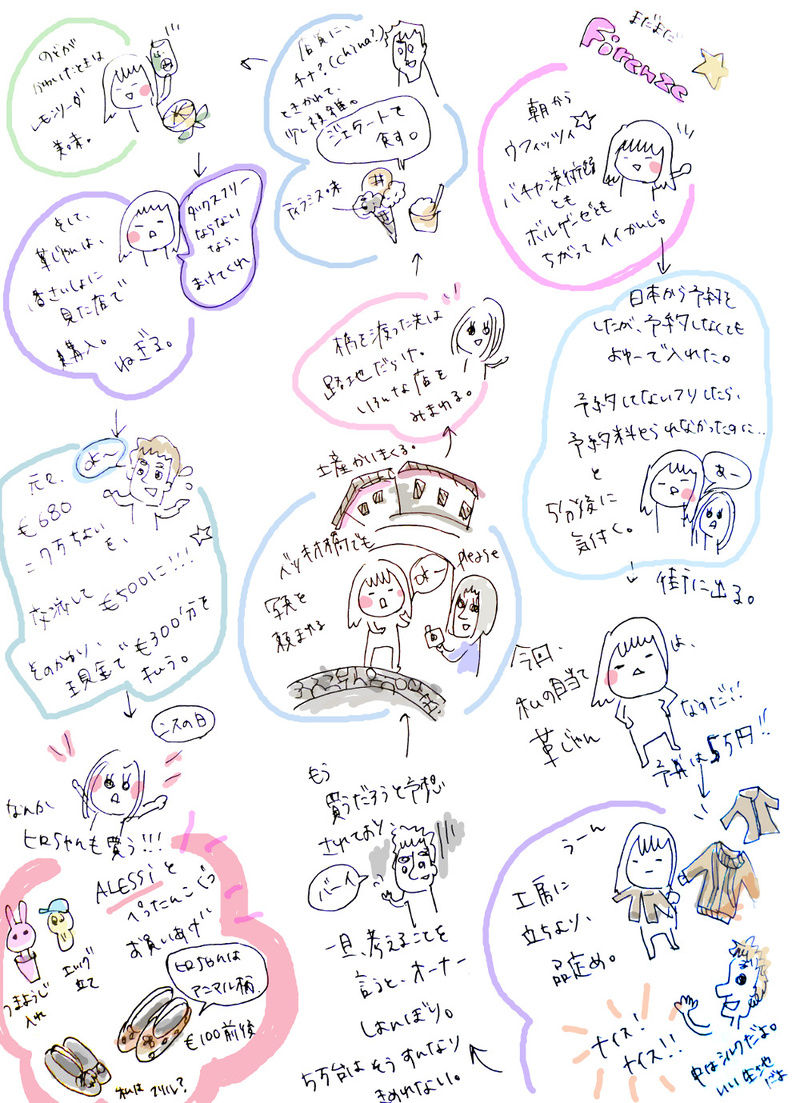 まだまだ
Firenze
朝から
ウフィッツィ☆
バチカン美術館
とも
ボルゲーゼとも
ちがってイイかんじ。
日本から予約を
したが、予約しなくても
よゆーで入れた。
予約してないフリしたら、
予約料とられなかったのに‥
と
5分後に
気付く。
あー
街に出る。
今回、
私の目当て
は、
革じゃん
なのだ!!
予算は5万円!!
うーん
工房に
立ちより、
品定め。
ナイス!
ナイス!!
中はシルクだよ。
いい生地
だよ
もう
買うだろうと予想
されており、
バーイ
一旦、考えることを
言うと、オーナー
しょんぼり。
5万台はそうすんなり
きめれない。
土産かいまくる。
ベッキオ橋でも
写真を
頼まれる
please
橋を渡った先は
路地だらけ。
いろいろな店を
みまわる。
店員に、
チナ?(china?)
ときかれて、
少し複雑。
ジェラートで
食す。
ティラミス味
のどが
かわいたときは
レモンソーダ
美味。
そして、
革じゃんは、
昔さいしょに
見た店で
購入。
ねぎる。
タックスフリー
ならない
なら、
まけてくれ
よ〜
元々、
€680
=7万ちょい
を、
交渉して
€500に!!!☆
そのかわり、
現金で€300分を
払う。
なんか
ヒロちゃんも買う!!!
ALESSiと
ぺったんこぐつ
お買いあげ
つまようじ
入れ
エッグ
立て
ヒロちゃんは
アニマル柄
€100前後